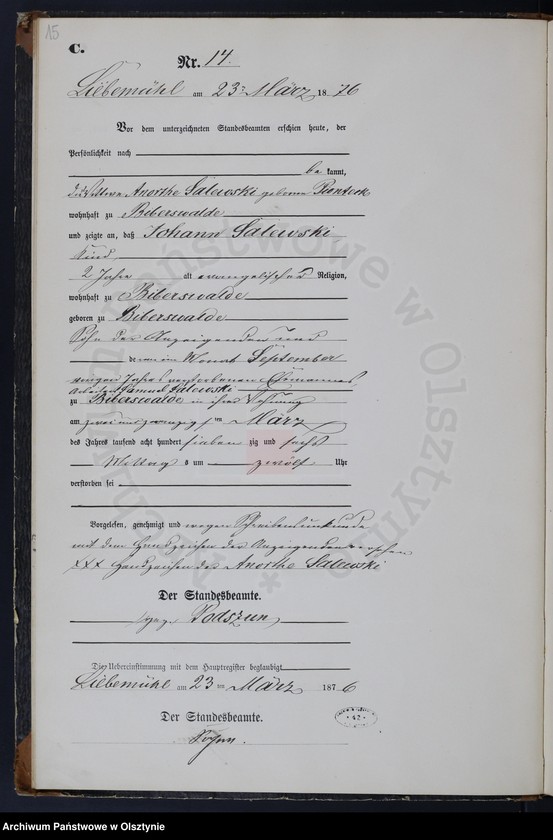 15
C.
Nr. 14.
Liebemühl am 23ten März 1876
Vor dem unterzeichneten Standesbeamten erschien heute, der
Persönlichkeit nach
bekannt,
die Wittwe Anorthe Salewski geborene
wohnhaft zu Biberswalde
und zeigte an, daß Johann Salewski
Kind,
2 Jahre alt evangelischer Religion,
wohnhaft zu Biberswalde
geboren zu Biberswalde
Sohn der Anzeigenden und
deren im Monat September
vorigen Jahres verstorbenen Ehemannes
Samuel Salewski
zu Biberswalde in ihrer Wohnung
am zweiundzwanzigsten März
des Jahres tausend acht hundert siebenzig und sechs
Mittags um zwölf Uhr
verstorben sei
Vorgelesen, genehmigt und wegen Schreibensunkunde
mit dem Handzeichen der Anzeigenden versehen
XXX Handzeichen der Anorthe Salewski
Der Standesbeamte.
gez. Podszun
Die Uebereinstimmung mit dem Hauptregister beglaubigt
Liebemühl am 23ten März 1876
Der Standesbeamte.
Archiwum Państwowe w Olsztynie
Archiwum Państwowe w Olsztynie